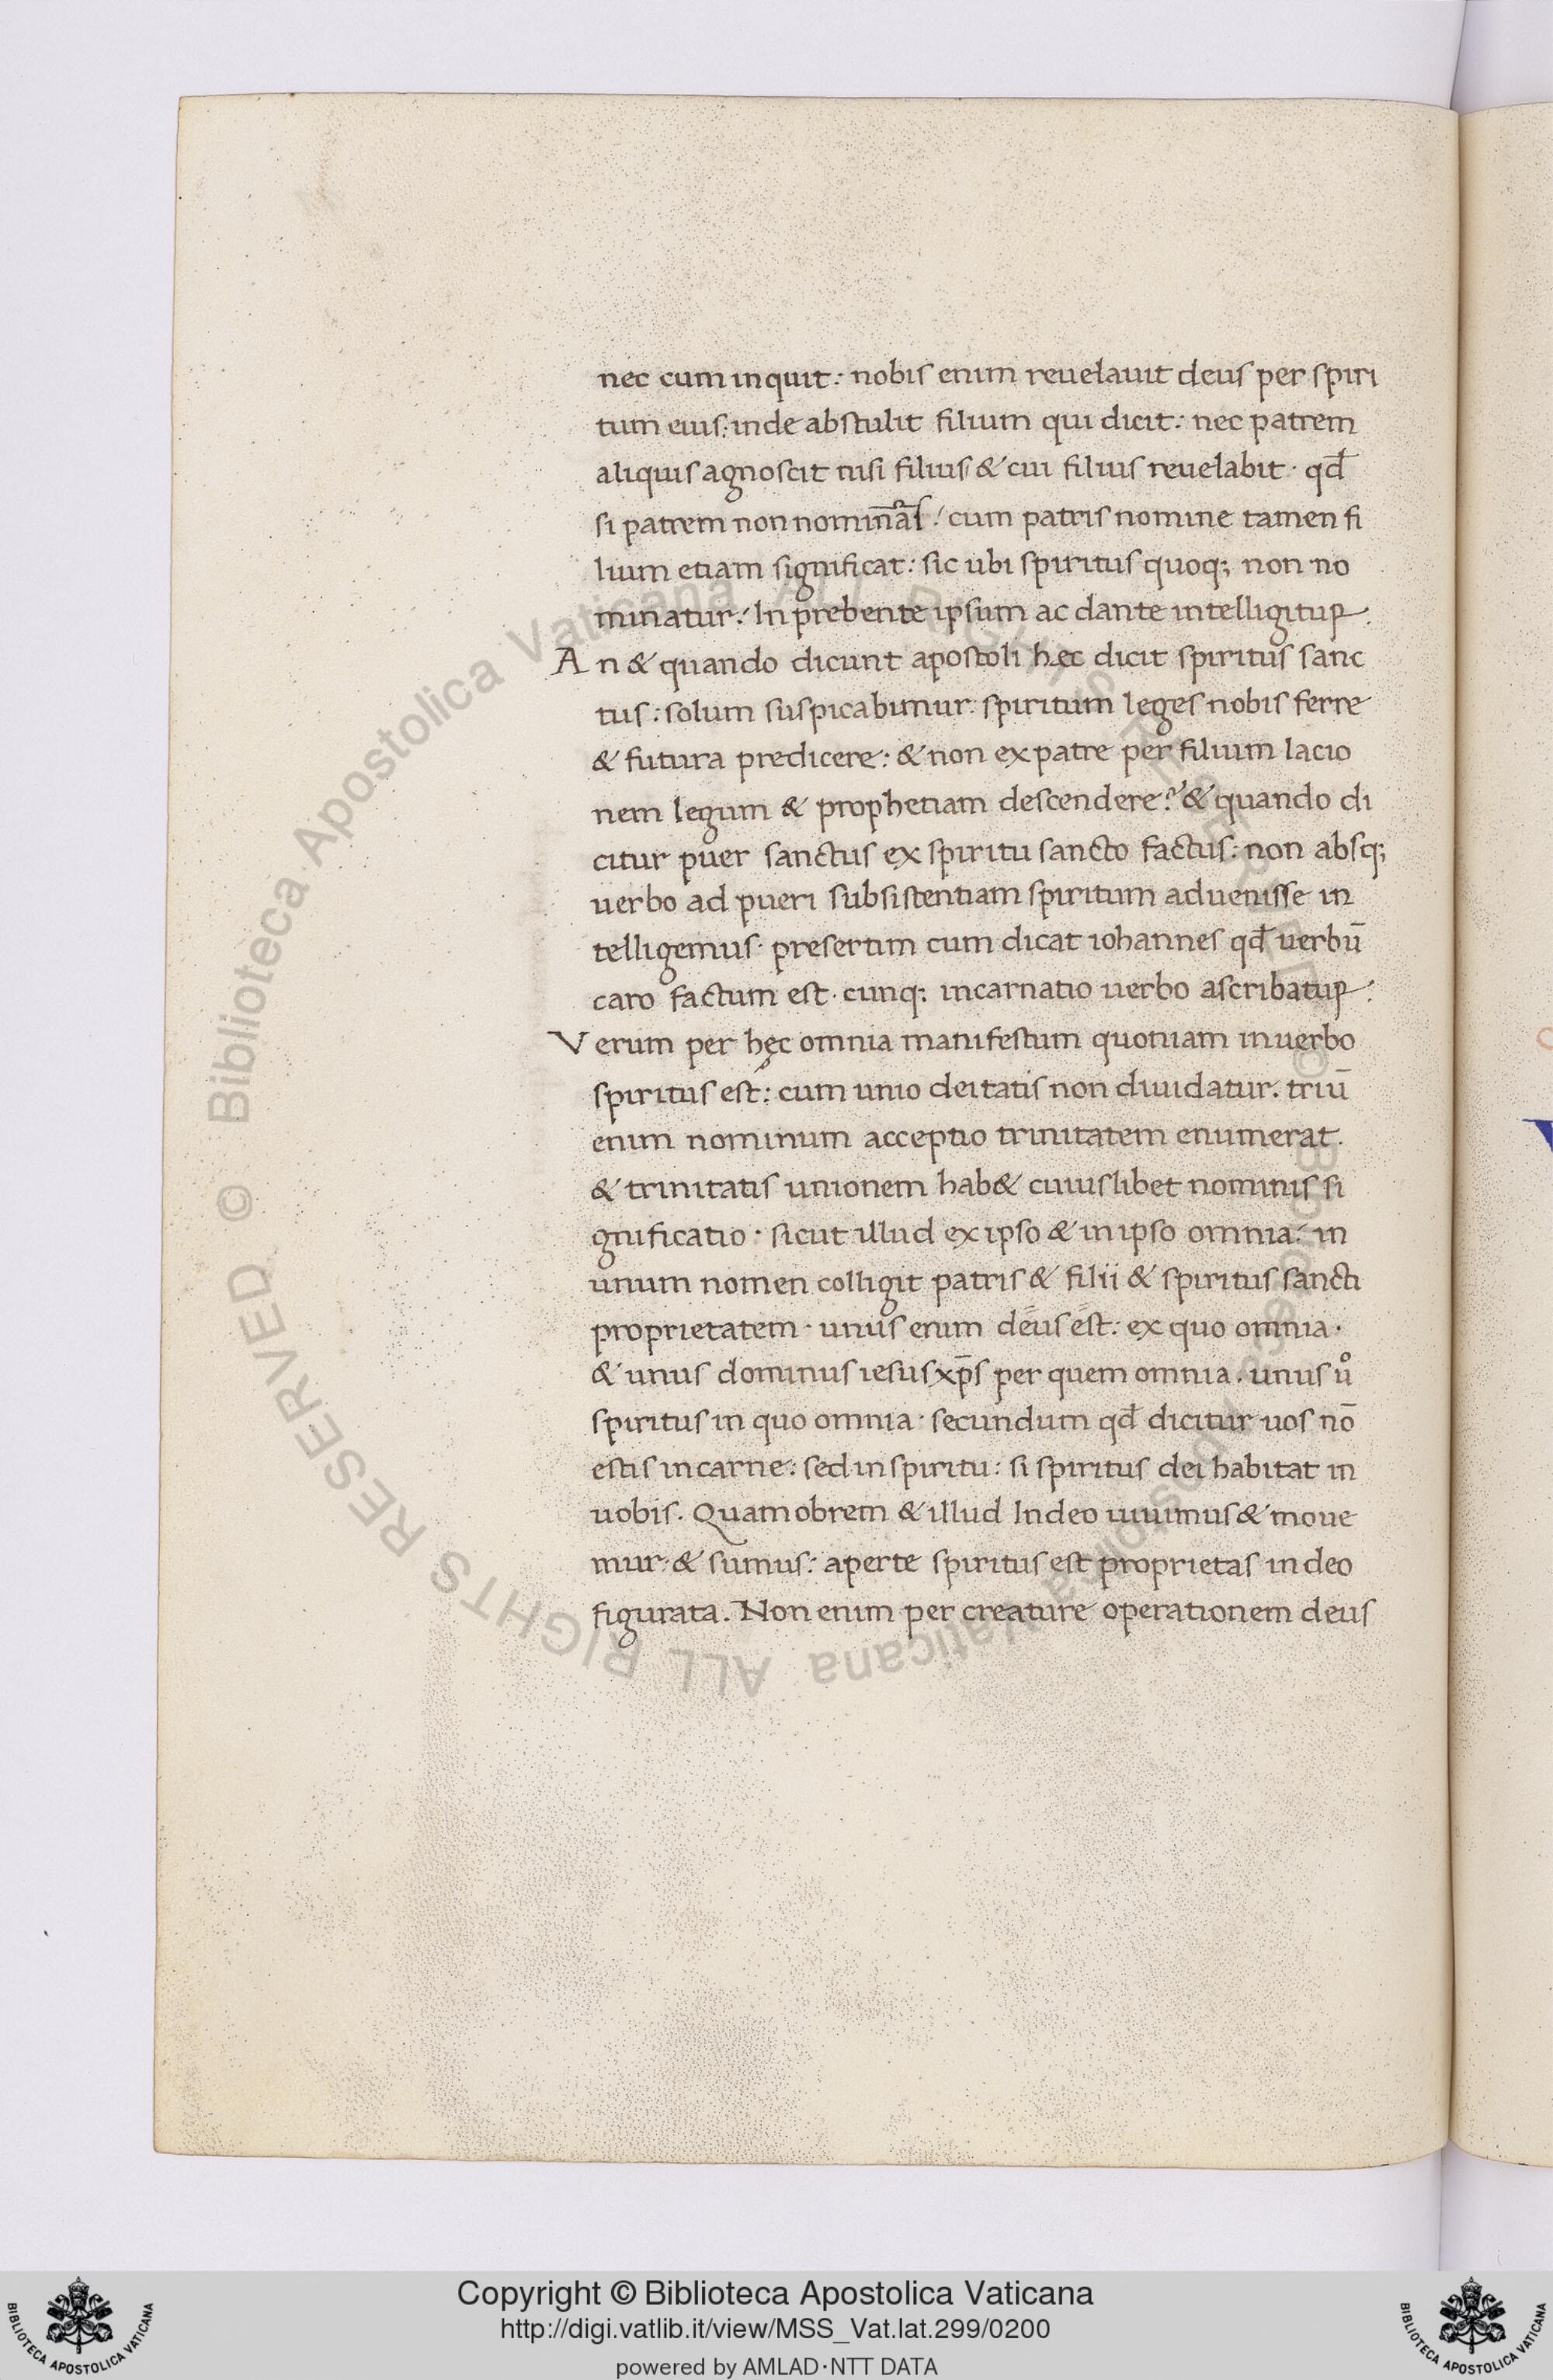 nec cum inquit: nobis enim reuelauit deus per spiri
tum eius: inde abstulit filium qui dicit: nec patrem
aliquis agnoscit nisi filius & cui filius reuelabit · qđ
si patrem non cum patris nomine tamen fi
lium etiam significat: sic ubi spiritus quoq; non no
minatur: In prebente ipsum ac dante intelligitur.
An & quando dicunt apostoli hec dicit spiritus sanc
tus: solum suspicabimur spiritum leges nobis ferre
& futura predicere: & non ex patre per filium lacio
nem legum & prophetiam descendere? & quando di
citur puer sanctus ex spiritu sancto factus: non absq;
uerbo ad pueri subsistentiam spiritum aduenisse in
telligemus · presertim cum dicat iohannes qđ uerbū
caro factum est · cunq; incarnatio uerbo ascribatur:
Verum per hęc omnia manifestum quoniam in uerbo
spiritus est: cum unio deitatis non diuidatur. triū
enim nominum acceptio trinitatem enumerat.
& trinitatis unionem hab& cuiuslibet nominis si
gnificatio · sicut illud ex ipso & in ipso omnia: in
unum nomen colligit patris & filii & spiritus sancti
proprietatem · unus enim deus est: ex quo omnia ·
& unus dominus iesus xp̄s per quem omnia. unus uͦ
spiritus in quo omnia · secundum qđ dicitur uos nō
estis in carne: sed in spiritu: si spiritus dei habitat in
uobis. Quamobrem & illud In deo uiuimus & moue
mur · & sumus: aperte spiritus est proprietas in deo
figurata. Non enim per creature operationem deus
© Biblioteca Apostolica Vaticana ALL RIGHTS RESERVED
© Biblioteca Apostolica Vaticana ALL RIGHTS RESERVED
Copyright © Biblioteca Apostolica Vaticana
http://digi.vatlib.it/view/MSS_Vat.lat.299/0200
powered by AMLAD·NTT DATA
BIBLIOTECA APOSTOLICA VATICANA
BIBLIOTECA APOSTOLICA VATICANA